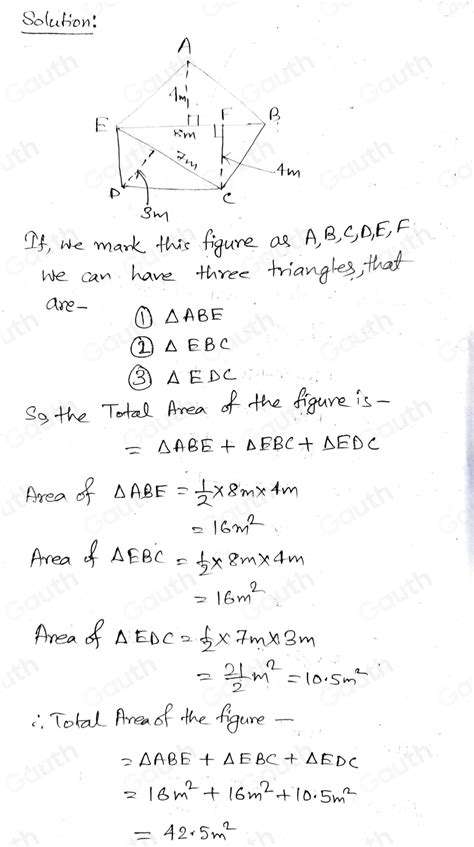 Solution:
A
4m
E
F
B
8m
7m
4m
D
C
3m
If, we mark this figure as A,B,C,D,E,F
we can have three triangles, that
are-
① △ABE
② △ EBC
③ △ EDC
So, the Total Area of the figure is -
= △ABE + △EBC + △EDC
Area of △ABE = 1/2 × 8m × 4m
= 16m²
Area of △EBC = 1/2 × 8m × 4m
= 16m²
Area of △EDC = 1/2 × 7m × 3m
= 21/2 m² = 10.5m²
∴ Total Area of the figure —
= △ABE + △EBC + △EDC
= 16m² + 16m² + 10.5m²
= 42.5m²